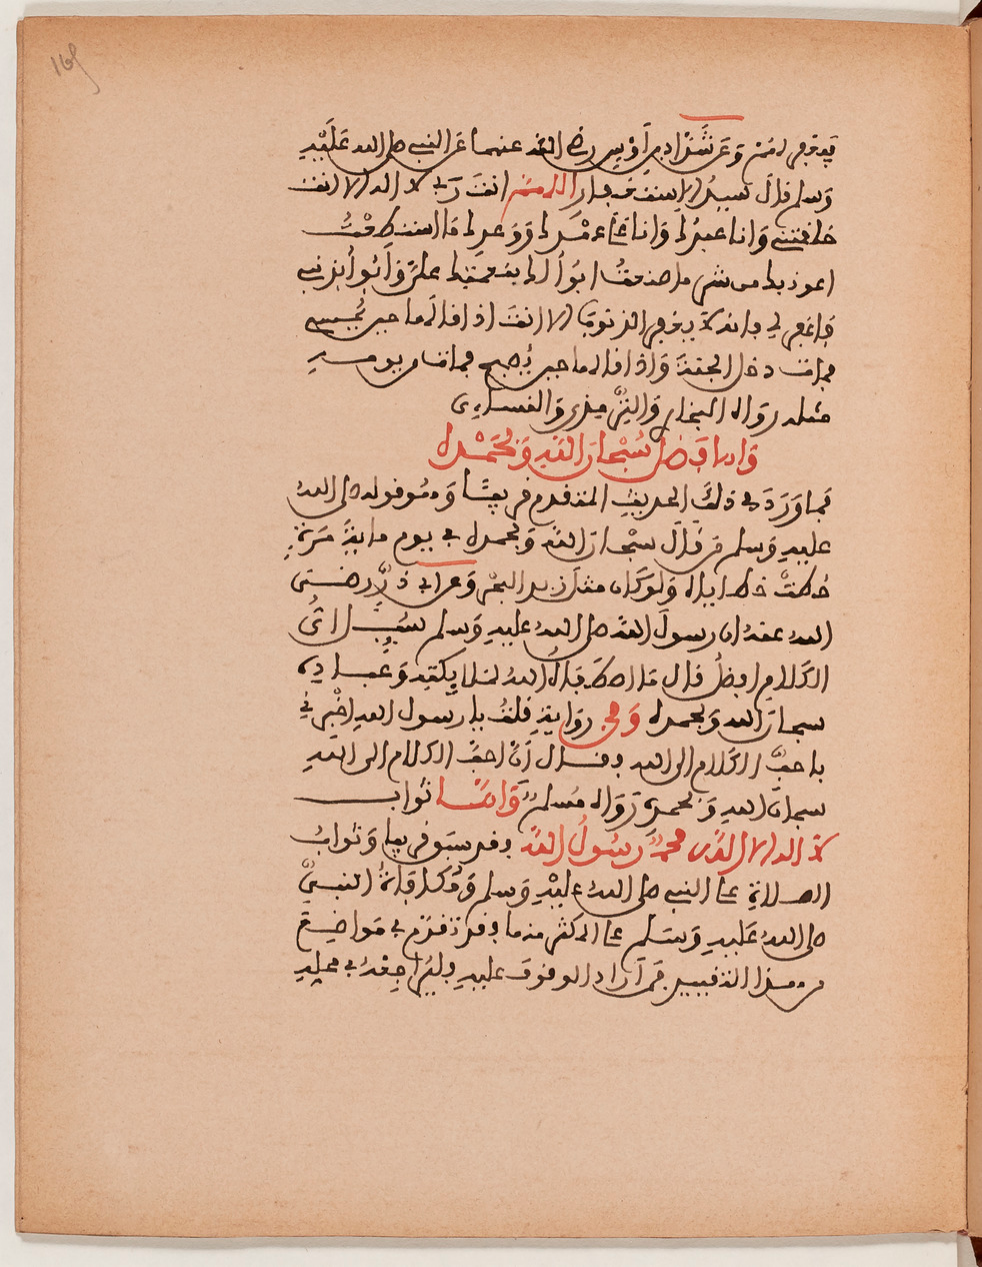 فيغفر لهم وعن شداد بن أوس رضي الله عنهما عن النبي صلى الله عليه
وسلم قال سيد الاستغفار اللهم أنت ربي لا اله الا انت
خلقتني وانا عبدك وانا على عهدك ووعدك ما استطعت
اعوذ بك من شر ما صنعت ابوء لك بنعمتك علي وأبوء بذنبي
فاغفر لي فانه لا يغفر الذنوب الا انت اذا قالها حين يمسي
فمات دخل الجنة واذا قالها حين يصبح فمات من يومه
مثله رواه البخاري والترمذي والنسائي
واما فضل سبحان الله وبحمده
فما ورد في ذلك الحديث المتقدم قريبا وهو قوله صلى الله
عليه وسلم من قال سبحان الله وبحمده في يوم مائة مرة
حطت خطاياه ولو كان مثل زبد البحر وعن ابي ذر رضي
الله عنه ان رسول الله صلى الله عليه وسلم سئل اي
الكلام افضل قال ما اصطفاه الله لملايكته وعباده
سبحان الله وبحمده وفي رواية قلت يا رسول الله اخبرني
باحب الكلام الى الله فقال ان احب الكلام الى الله
سبحان الله وبحمده رواه مسلم واما ثواب
لا اله الا الله محمد رسول الله فقد سبق قريبا وثواب
الصلاة على النبي صلى الله عليه وسلم وهكذا النبي
صلى الله عليه وسلم على اله كثير منها فقد تقدم في مواضع
من هذا التقييد فمن أراد الوقوف عليه فليراجعه في محله